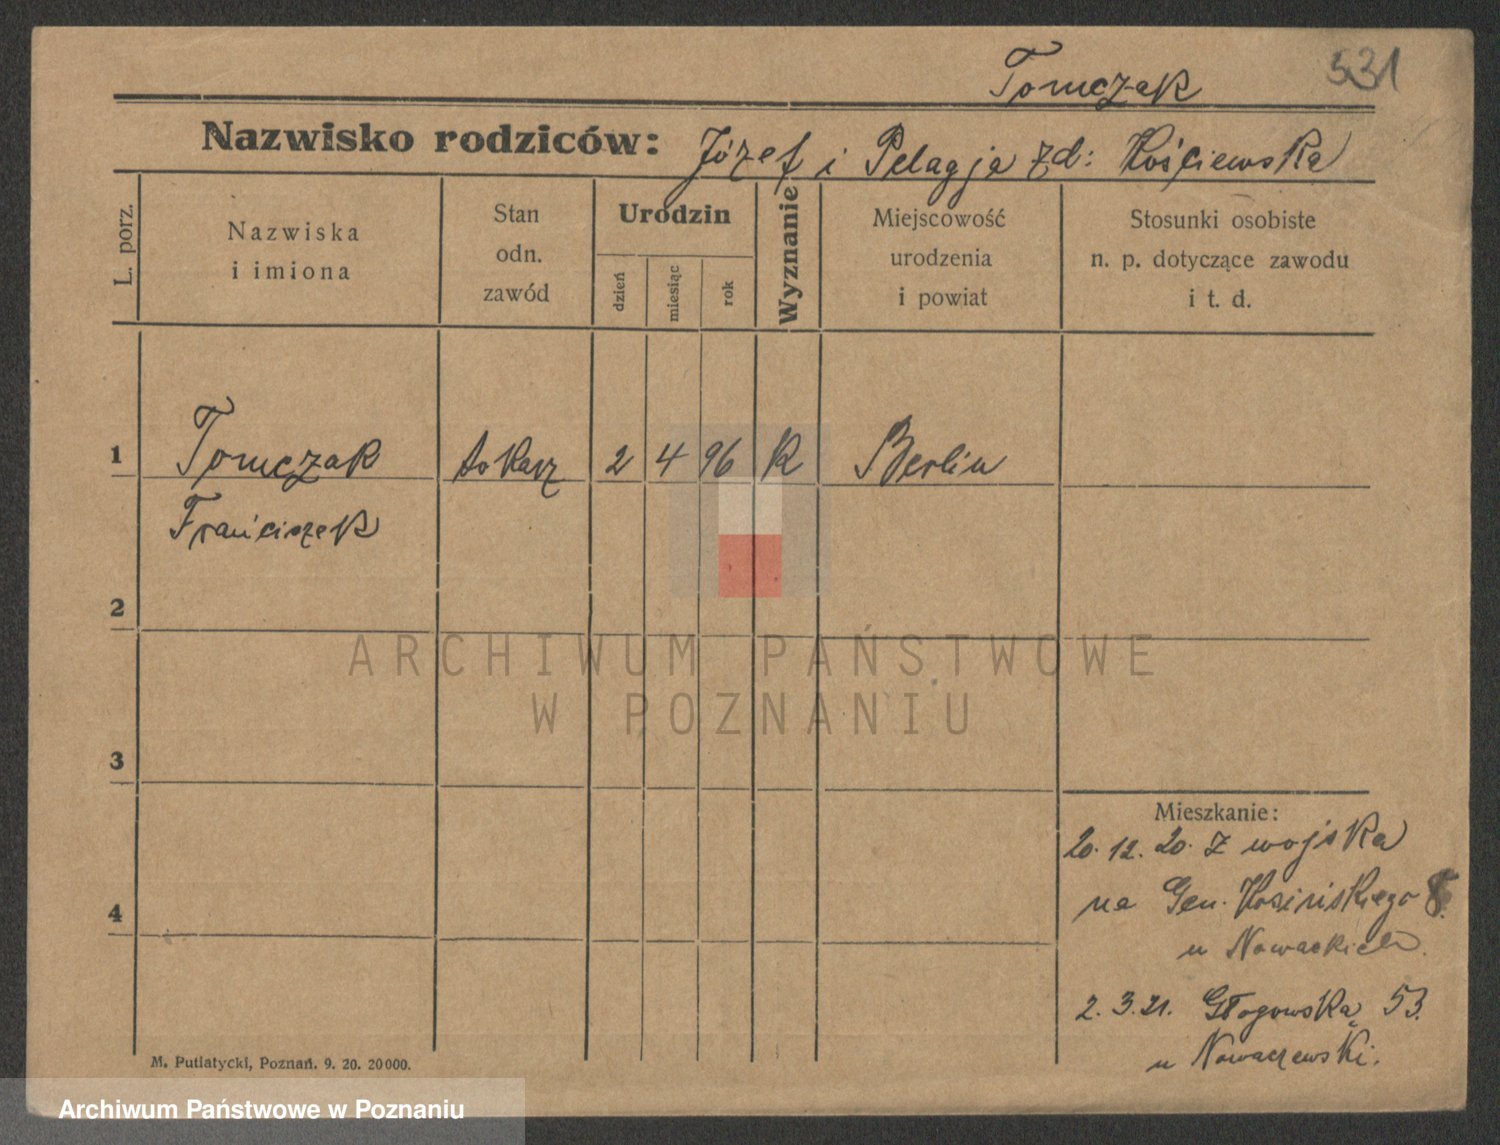 Tomczak 531
Nazwisko rodziców: Józef i Pelagja zd: Kościewska
L. porz.
Nazwiska
i imiona
Stan
odn.
zawód
Urodzin
dzień
miesiąc
rok
Wyznanie
Miejscowość
urodzenia
i powiat
Stosunki osobiste
n. p. dotyczące zawodu
i t. d.
1 Tomczak tokarz 2 4 96 k Berlin
Franciszek
2
ARCHIWUM PAŃSTWOWE
W POZNANIU
3
Mieszkanie:
20. 12. 20. z wojska
na Gen. Kosińskiego 8.
4
u Nowackich.
2. 3. 21. Głogowską 53.
u Nowaczewski.
M. Putiatycki, Poznań. 9. 20. 20000.
Archiwum Państwowe w Poznaniu